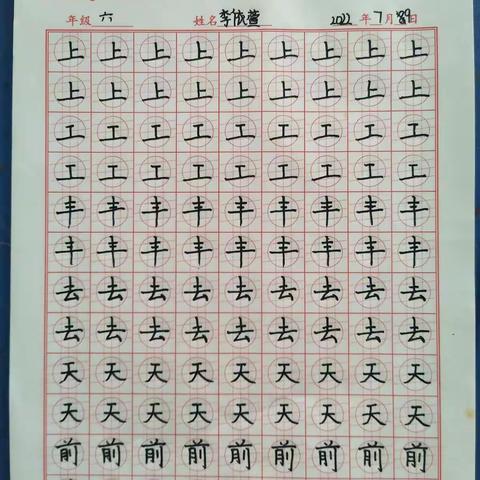 年级 六 姓名 李 2022 年 7 月 日
上 上 上 上 上 上 上 上 上
上 上 上 上 上 上 上 上 上
工 工 工 工 工 工 工 工 工
工 工 工 工 工 工 工 工 工
丰 丰 丰 丰 丰 丰 丰 丰 丰
丰 丰 丰 丰 丰 丰 丰 丰 丰
去 去 去 去 去 去 去 去 去
去 去 去 去 去 去 去 去 去
天 天 天 天 天 天 天 天 天
天 天 天 天 天 天 天 天 天
前 前 前 前 前 前 前 前 前